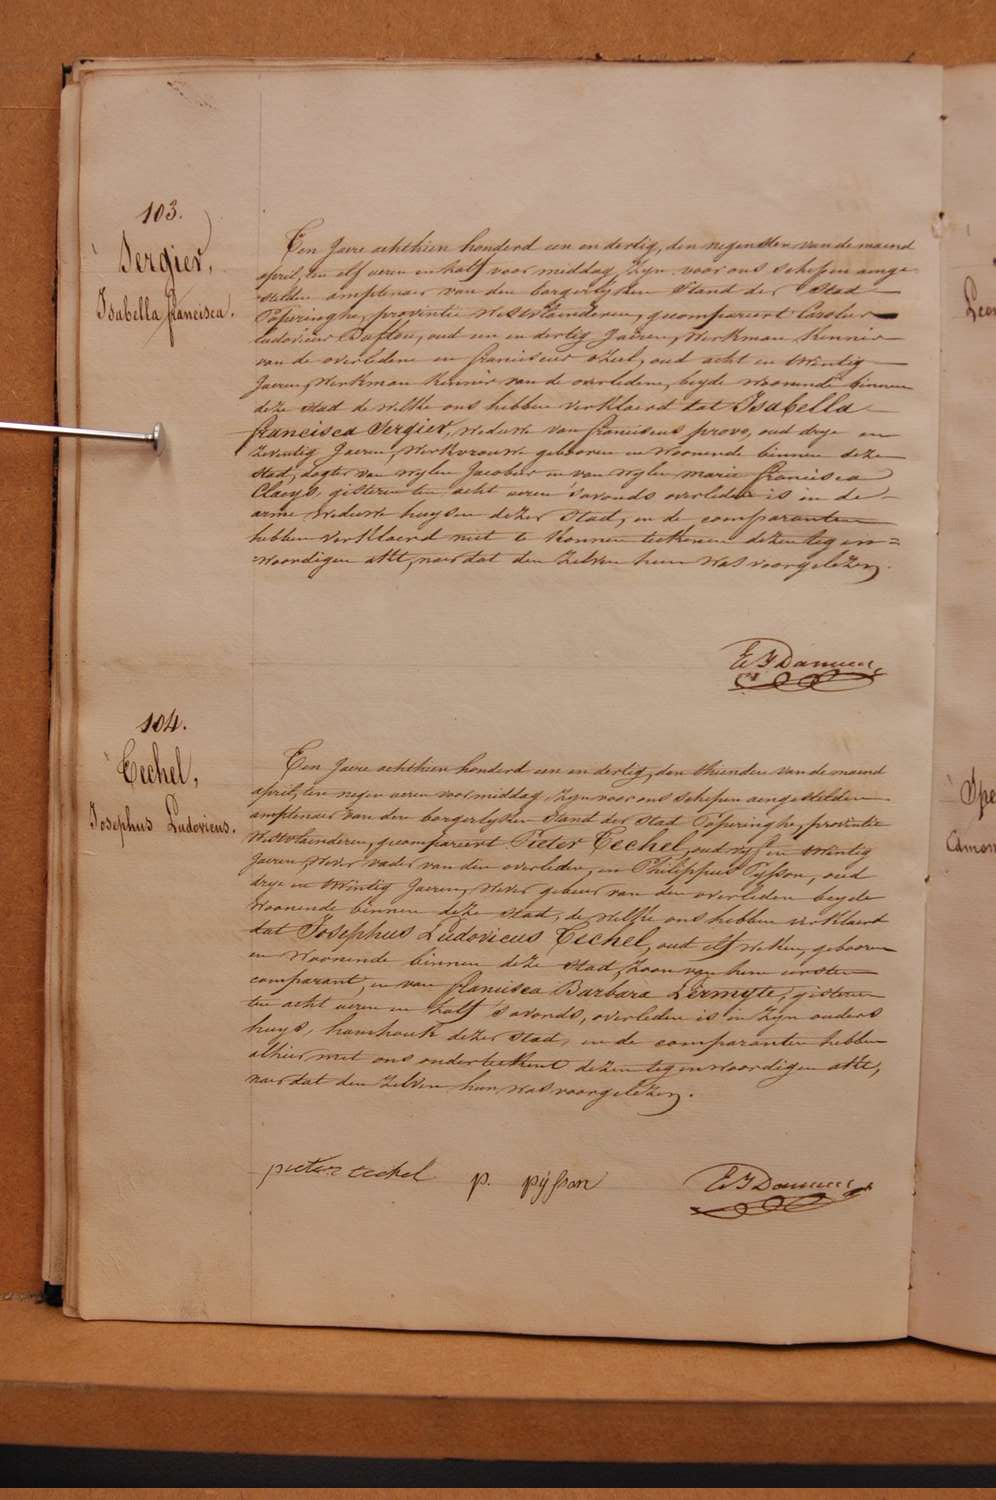 103.
Sergier,
Isabella francisca.
Een Jaere achthien honderd een en dertig, den negensten van de maend
april, ten elf ueren en half voor middag, Zyn voor ons schepen ange-
stelden amptenaer van den borgerlyken Stand der Stad
Poperinghe, provintie Westvlainderen, gecompareert
Ludovicus oud een en dertig Jaeren, Werkman Kennis
van de overledene en franciscus oud acht en Wintig
Jaeren, Werkman Kennis van de overledene, beyde Woonende binnen
deze Stad de Welke ons hebben verklaerd dat Isabella
francisca Sergier, Weduwe van franciscus provo, oud drye en
Zeventig Jaeren, Werkvrouwe gebooren en Woonende binnen deze
Stad, dogter van Wylen Jacobus en van Wylen Marie francisca
Claeys, gisteren ten acht ueren s'avonds overleden is in de
arme Weduwe huysen dezer Stad, en de comparanten
hebben verklaerd niet te konnen teekenen dezen tegen=
=woordigen akte, naer dat den Zelven hun Was voorgelezen.
E J Damien
104.
Techel,
Josephus Ludovicus.
Een Jaere achthien honderd een en dertig, den thienden van de maend
april, ten negen ueren voor middag Zyn voor ons schepen aengestelden
amptenaer van den borgerlyken Stand der Stad Poperinghe, provintie
Westvlainderen, gecompareert Pieter Techel, oud vyf en Wintig
Jaeren, Wever vader van den overleden, en Philippus Pysson, oud
drye en Wintig Jaeren, Wever gebuer van den overleden beyde
Woonende binnen deze Stad, de Welke ons hebben verklaerd
dat Josephus Ludovicus Techel, oud elf Weken, gebooren
en Woonende binnen deze Stad, Zoon van hem eersten
comparant, en van francisca Barbara Lermyte, gisteren
ten acht ueren en half s'avonds, overleden is in Zyn ouders
huys, hamhoek dezer Stad, en de comparanten hebben
alhier met ons onderteekent dezen tegenwoordigen akte,
naer dat den Zelven hun Was voorgelezen.
pieter techel p. pÿsson E J Damien